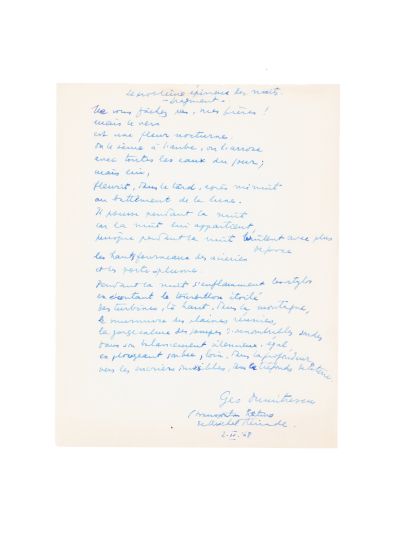 Le problème épineux des nuits
- fragment -
Ne vous fâchez pas, mes frères !
mais le vers
est une fleur nocturne.
on le sème à l'aube, on l'arrose
avec toutes les eaux du jour ;
mais lui,
fleurit, tard, après minuit
au battement de la lune.
Il pousse pendant la nuit
car la nuit lui appartient
puisque pendant la nuit brûlent avec plus
de force
les hauts fourneaux des aciéries
et les porte-plume.
Pendant la nuit s'enflamment les stylos
en écoutant le tourbillon étoilé
des turbines, là haut, dans la montagne,
le murmure des plaines réunies,
la gorge calme des pompes
dans son balancement silencieux, égal
en plongeant sombre, loin, dans la profondeur
vers les encriers invisibles, dans
Geo Dumitrescu
2. IV. 68